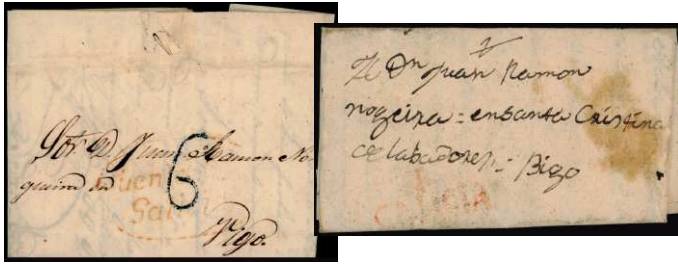 Sor. D. Juan Ramon No
gueira en
6
Vigo.
A Dn Juan Ramon
nogeira = ensanta Cristina
de labadores = Bigo
GALICIA